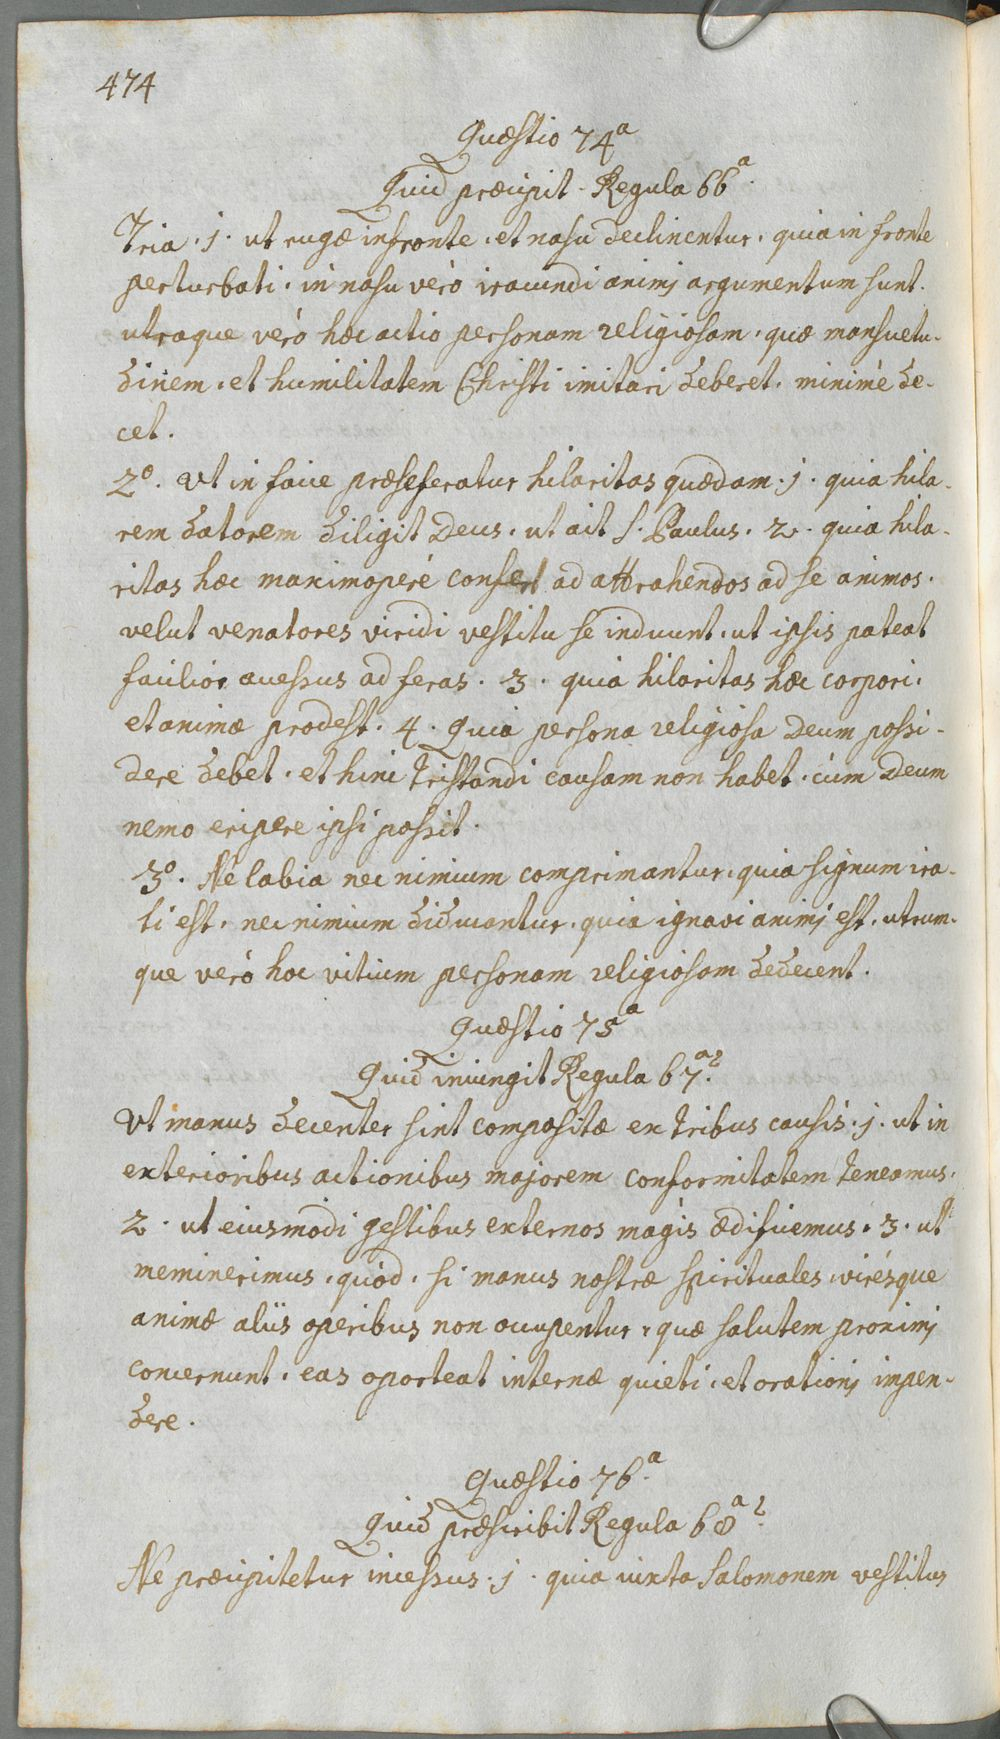 474
Quæstio 74ª
Quid præcipit Regula 66ª.
Tria. 1. ut rugæ in fronte, et nasu declinentur, quia in fronte
perturbati, in nasu verò iracundi animi argumentum sunt.
utraque verò hæc actio personam religiosam, quæ mansuetu-
dinem, et humilitatem Christi imitari deberet, minimè de-
cet.
2º. Ut in facie præseferatur hilaritas quædam. 1. quia hila-
rem datorem diligit Deus, ut ait S. Paulus. 2. quia hila-
ritas hæc maximoperé confert ad attrahendos ad se animos.
velut venatores viridi vestitu se induunt, ut ipsis pateat
facilior accessus ad feras. 3. quia hilaritas hæc corpori,
et animæ prodest. 4. Quia persona religiosa Deum possi-
dere debet, et hinc tristandi causam non habet, cùm Deum
nemo eripere ipsi possit.
3º. Né labia nec nimium comprimantur, quia signum ira-
ti est, nec nimium diducantur, quia ignavi animi est, utrum-
que verò hoc vitium personam religiosam dedecent.
Quæstio 75ª
Quid iniungit Regula 67ª?
Ut manus decenter sint compositæ ex tribus causis. 1. ut in
exterioribus actionibus majorem conformitatem teneamus.
2. ut eiusmodi gestibus externos magis ædificemus. 3. ut
meminerimus, quòd, si manus nostræ spirituales, virésque
animæ aliis operibus non occupentur, quæ salutem proximi
concernunt, eas oporteat internæ quieti, et orationi impen-
dere.
Quæstio 76ª.
Quid præscribit Regula 68ª?
Ne præcipitetur incessus. 1. quia iuxta Salomonem vestitus